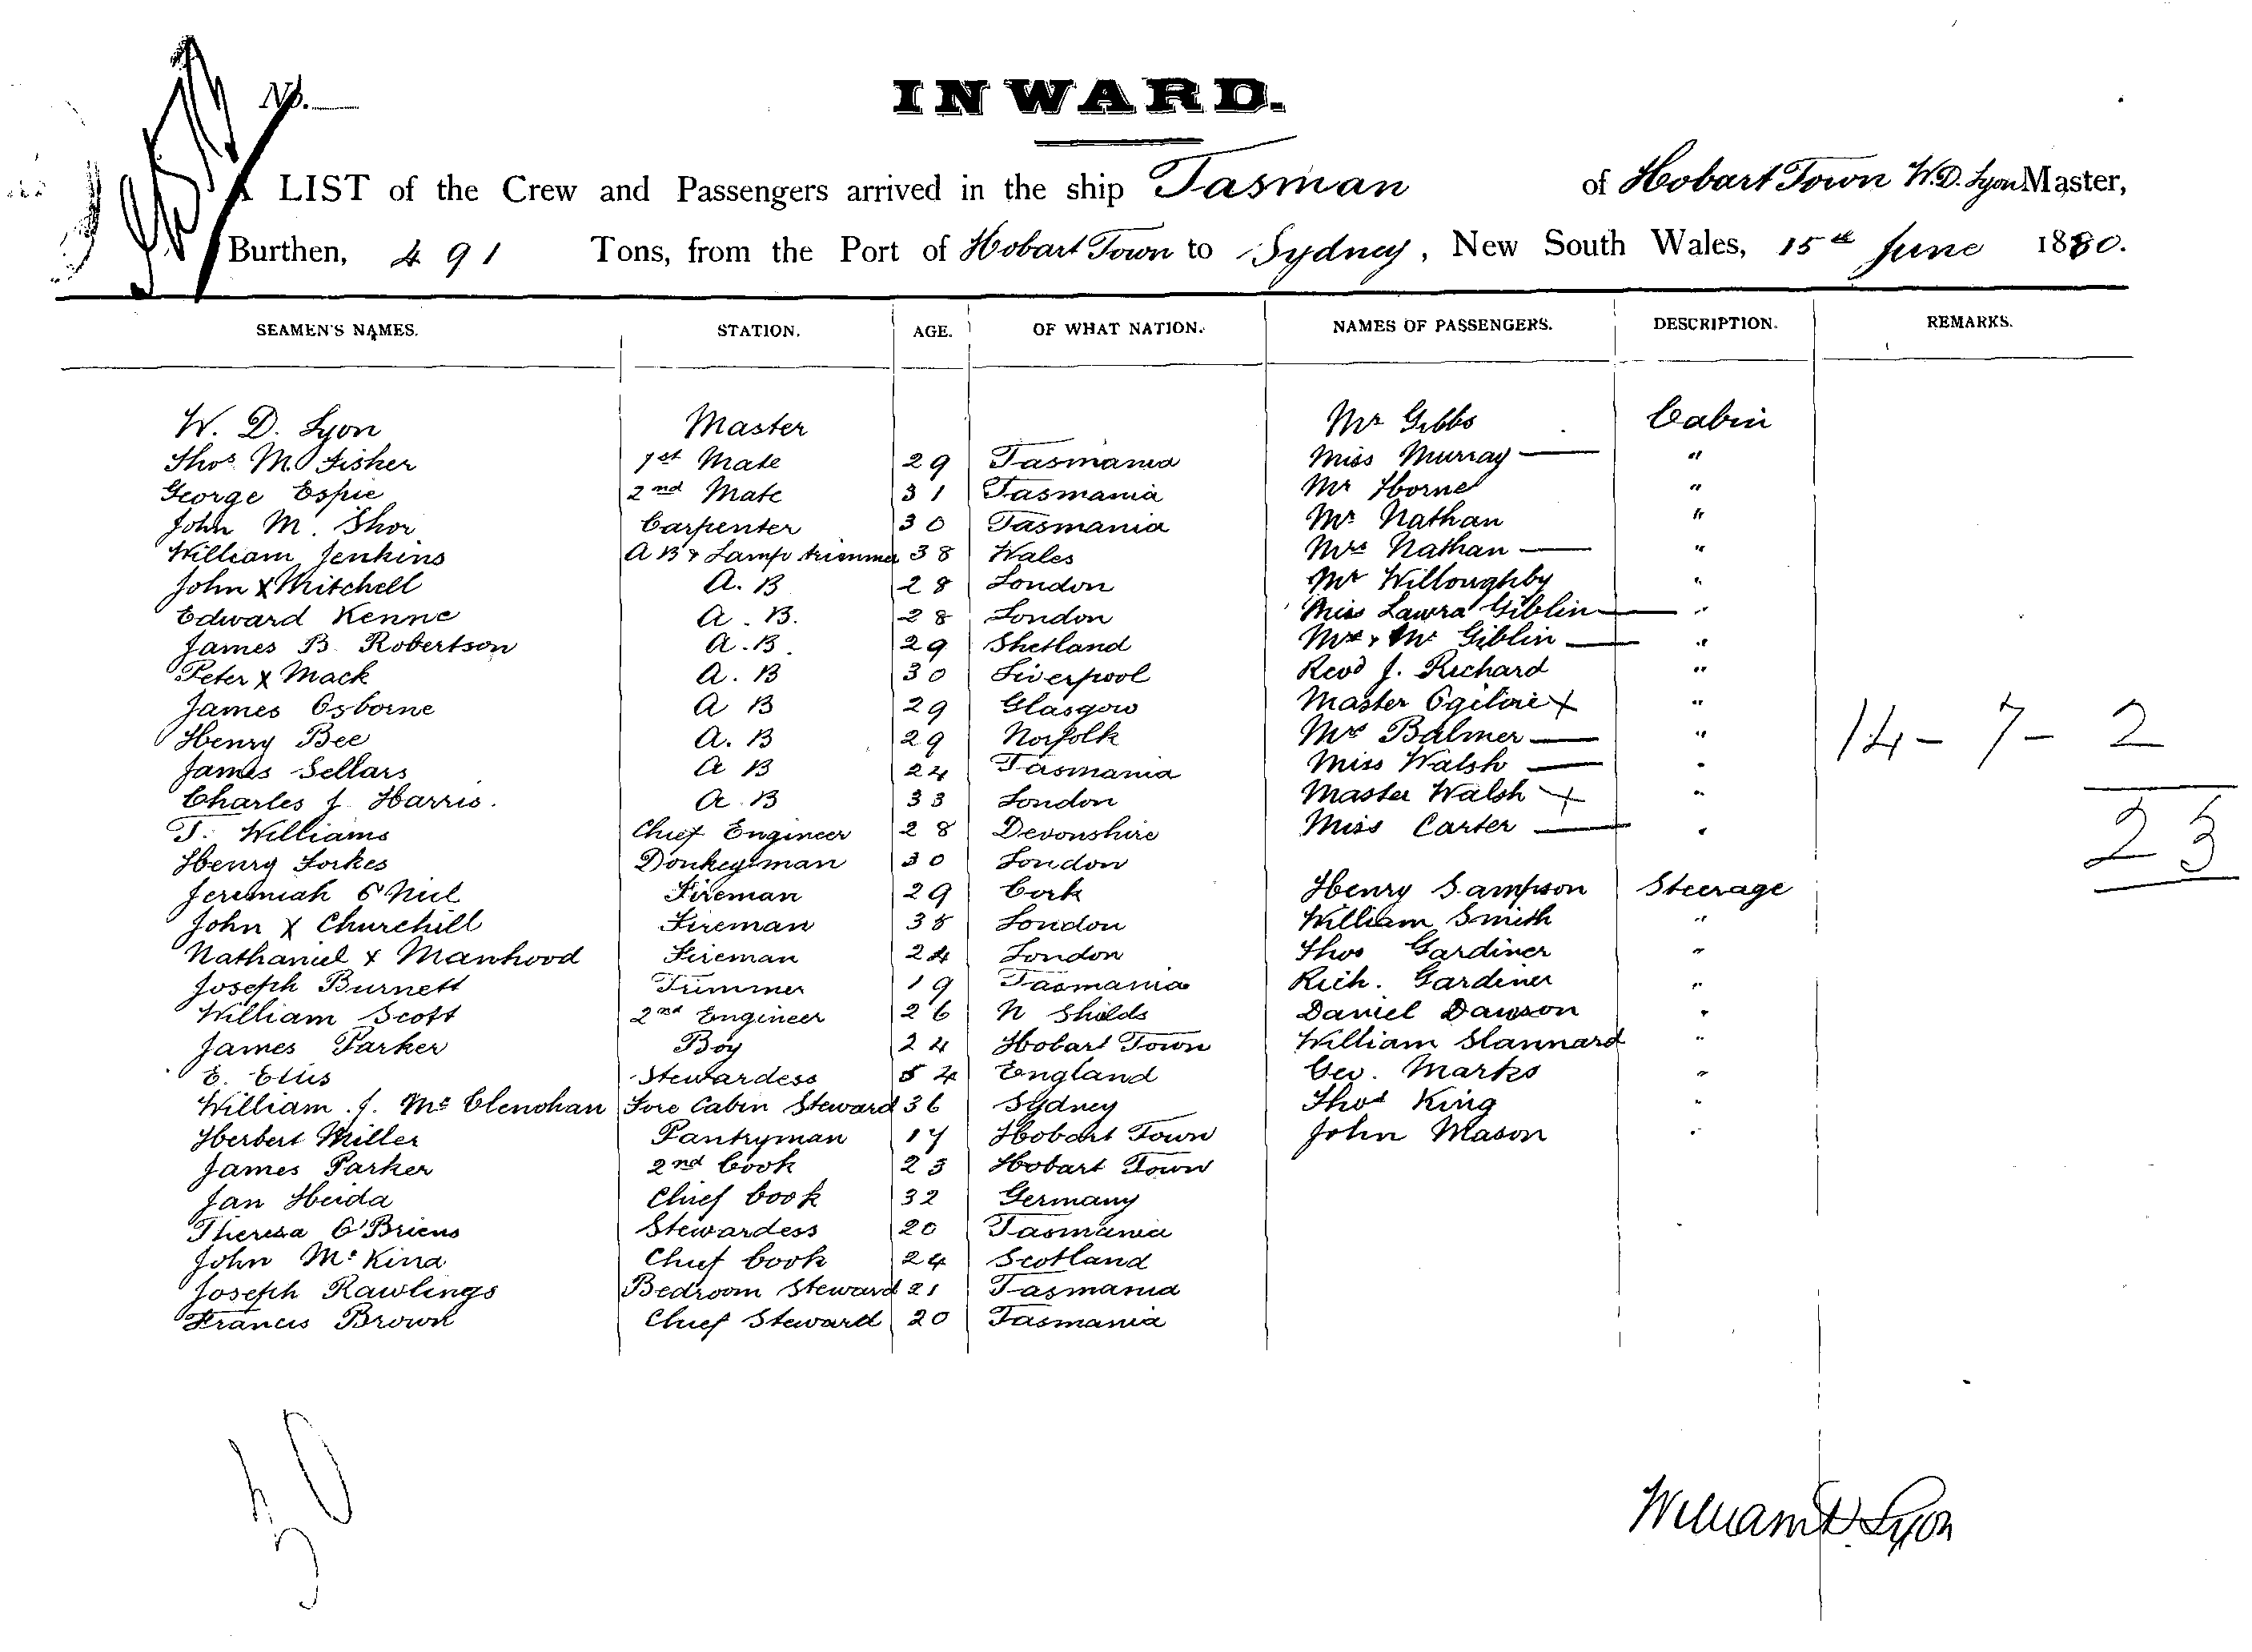 No.
INWARD.
A LIST of the Crew and Passengers arrived in the ship Tasman of Hobart Town W. D. Lyon Master,
Burthen, 491 Tons, from the Port of Hobart Town to Sydney, New South Wales, 15th June 1880.
SEAMEN'S NAMES. STATION. AGE. OF WHAT NATION. NAMES OF PASSENGERS. DESCRIPTION. REMARKS.
W. D. Lyon Master Mr Gibbs Cabin
Thos M. Fisher 1st Mate 29 Tasmania Miss Murray — "
George Espie 2nd Mate 31 Tasmania Mr Horne "
John M. Carpenter 30 Tasmania Mr Nathan "
William Jenkins A B & Lamp trimmer 38 Wales Mrs Nathan — "
John X Mitchell A. B 28 London Mr Willoughby "
Edward Kenne A. B. 28 London Miss Laura Giblin — "
James B. Robertson A. B. 29 Shetland Mrs & Mr Giblin — "
Peter X Mack A. B 30 Liverpool Revd J. Richard "
James Osborne A B 29 Glasgow Master Ogilvie X "
Henry Bee A. B 29 Norfolk Mrs Balmer — "
James Sellars A B 24 Tasmania Miss Walsh — "
Charles J. Harris. A. B 33 London Master Walsh X "
T. Williams Chief Engineer 28 Devonshire Miss Carter — "
Henry Forkes Donkeyman 30 London
Jeremiah O'Niel Fireman 29 Cork Henry Sampson Steerage
John X Churchill Fireman 38 London William Smith "
Nathaniel X Manhood Fireman 24 London Thos Gardiner "
Joseph Burnett Trimmer 19 Tasmania Rich. Gardiner "
William Scott 2nd Engineer 26 N Shields Daniel Dawson "
James Parker Boy 24 Hobart Town William Stannard "
E. Ellis Stewardess 54 England Geo. Marks "
William J. Mc Clenohan Fore Cabin Steward 36 Sydney Thos King "
Herbert Miller Pantryman 17 Hobart Town John Mason "
James Parker 2nd Cook 23 Hobart Town
Jan Heida Chief Cook 32 Germany
Theresa O'Briens Stewardess 20 Tasmania
John Mc Kina Chief Cook 24 Scotland
Joseph Rawlings Bedroom Steward 21 Tasmania
Francis Brown Chief Steward 20 Tasmania
14 - 7 - 2
23
30
William D. Lyon